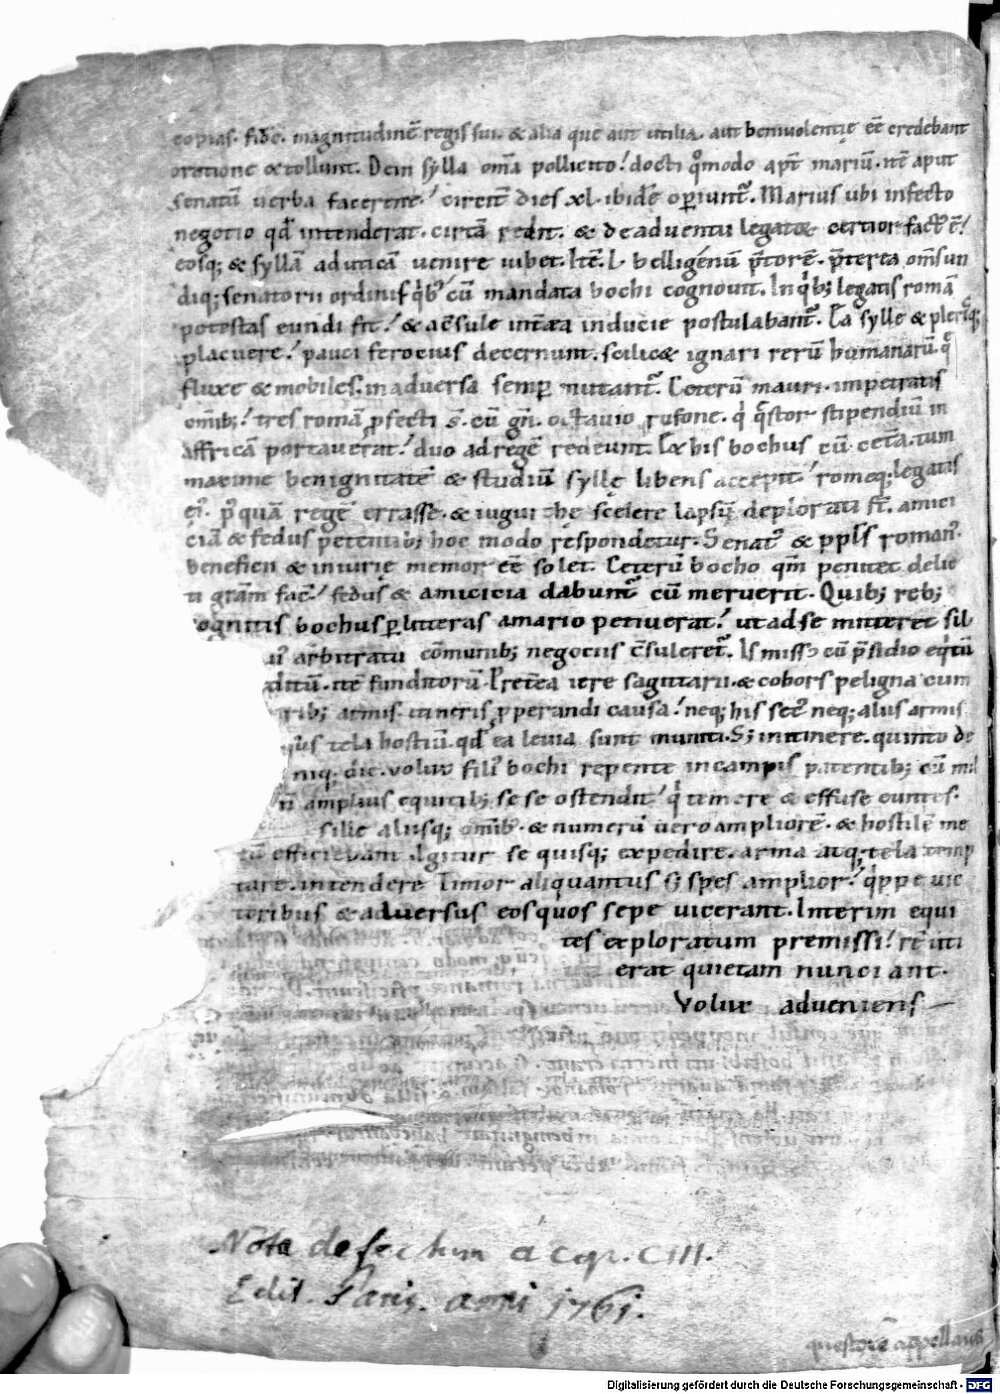 copias. fidē. magnitudinē regis sui. & alia que aut utilia. aut beniuolentię eē credebant
oratione extollunt. Dein sylla om̄a pollicito! docti qomodo apt̄ mariū. itē aput
senatū uerba facerent! circit̄ dies xl. ibidē opiunt̄. Marius ubi infecto
negotio qd̄ intenderat. cirtā redit. & de aduentu legatoꝝ certior fact' ē!
eosq; & syllā ab uticā uenire iubet. Itē. L. belligenū p̄torē. p̄terea om̄s un
diq; senatorii ordinis qib' cū mandata bochi cognouit. In qib; legatis romā
potestas eundi fit! & a c̄sule int̄ea inducie postulabant̄. Ea sylle & pleriq;
placuere! pauci ferocius decernunt. scilicet ignari rerū humanarū. q
fluxe & mobiles. in aduersa semp mutant̄. Ceterū mauri. impetratis
omib;! tres romā pfecti s̄. cū gn̄. octauio rufone. qi qstor stipendiū in
affricā portauerat! duo ad regē redeunt. Ex his bochus cū cet̄a. tum
maxime benignitatē & studiū syllę libens accepit! romeq; legatis
ei'. p' quā regē errasse. & iugurthę scelere lapsū deplorati s̄t. amici
ciā & fedus petentib; hoc modo respondetur. Senat' & ppls roman'.
beneficii & iniurię memor eē solet. Ceterū bocho qm̄ penitet delic
ti grām fac̄! fedus & amicicia dabunt̄ cū meruerit. Quib; reb;
cognitis bochus p litteras a mario petiuerat! ut ad se mitteret sil
ui' arbitratu cōmunib; negociis c̄suleret̄. Is miss' cū p̄sidio eqitū
ditū. itē funditorū. Pret̄ea iere sagittarii. & cohors peligna cum
rib; armis. itineris pperandi causa! neq; his sec' neq; aliis armis
us tela hostiū. qd̄ ea leuia sunt muniti. S; in itinere. quinto de
niq; die. uolux fili' bochi repente in campis patentib; cū mil
n̄ amplius equitib; sese ostendit! qi temere & effuse euntes.
sille aliisq; omib'. & numerū uero ampliorē. & hostilē me
tū efficiebant. Igitur se quisq; expedire. arma atq; tela temp
tare. intendere Timor aliquantus s; spes amplior! qippe uic
toribus & aduersus eos quos sepe uicerant. Interim equi
tes exploratum premissi! rē uti
erat quietam nunciant.
Volux adueniens —
Nota defectum a cap. CIII.
Edit. Paris. anni 1761.
questorē appellans
Digitalisierung gefördert durch die Deutsche Forschungsgemeinschaft - DFG